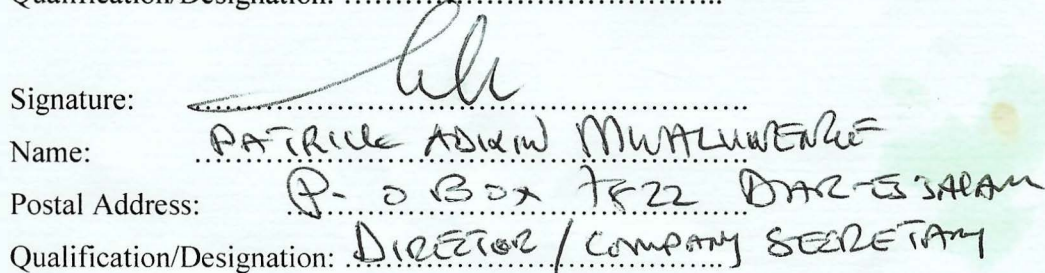 Qualification/Designation: ..........................................
Signature: ..........................................
Name: PATRICK
Postal Address: P- O BOX 7822 DAR-ES SALAAM
Qualification/Designation: DIRECTOR / COMPANY SECRETARY